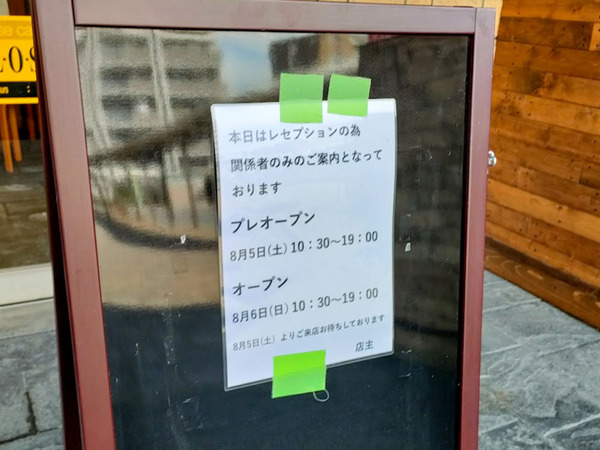 本日はレセプションの為
関係者のみのご案内となって
おります
プレオープン
8月5日(土) 10：30～19：00
オープン
8月6日(日) 10：30～19：00
8月5日(土) よりご来店お待ちしております
店主